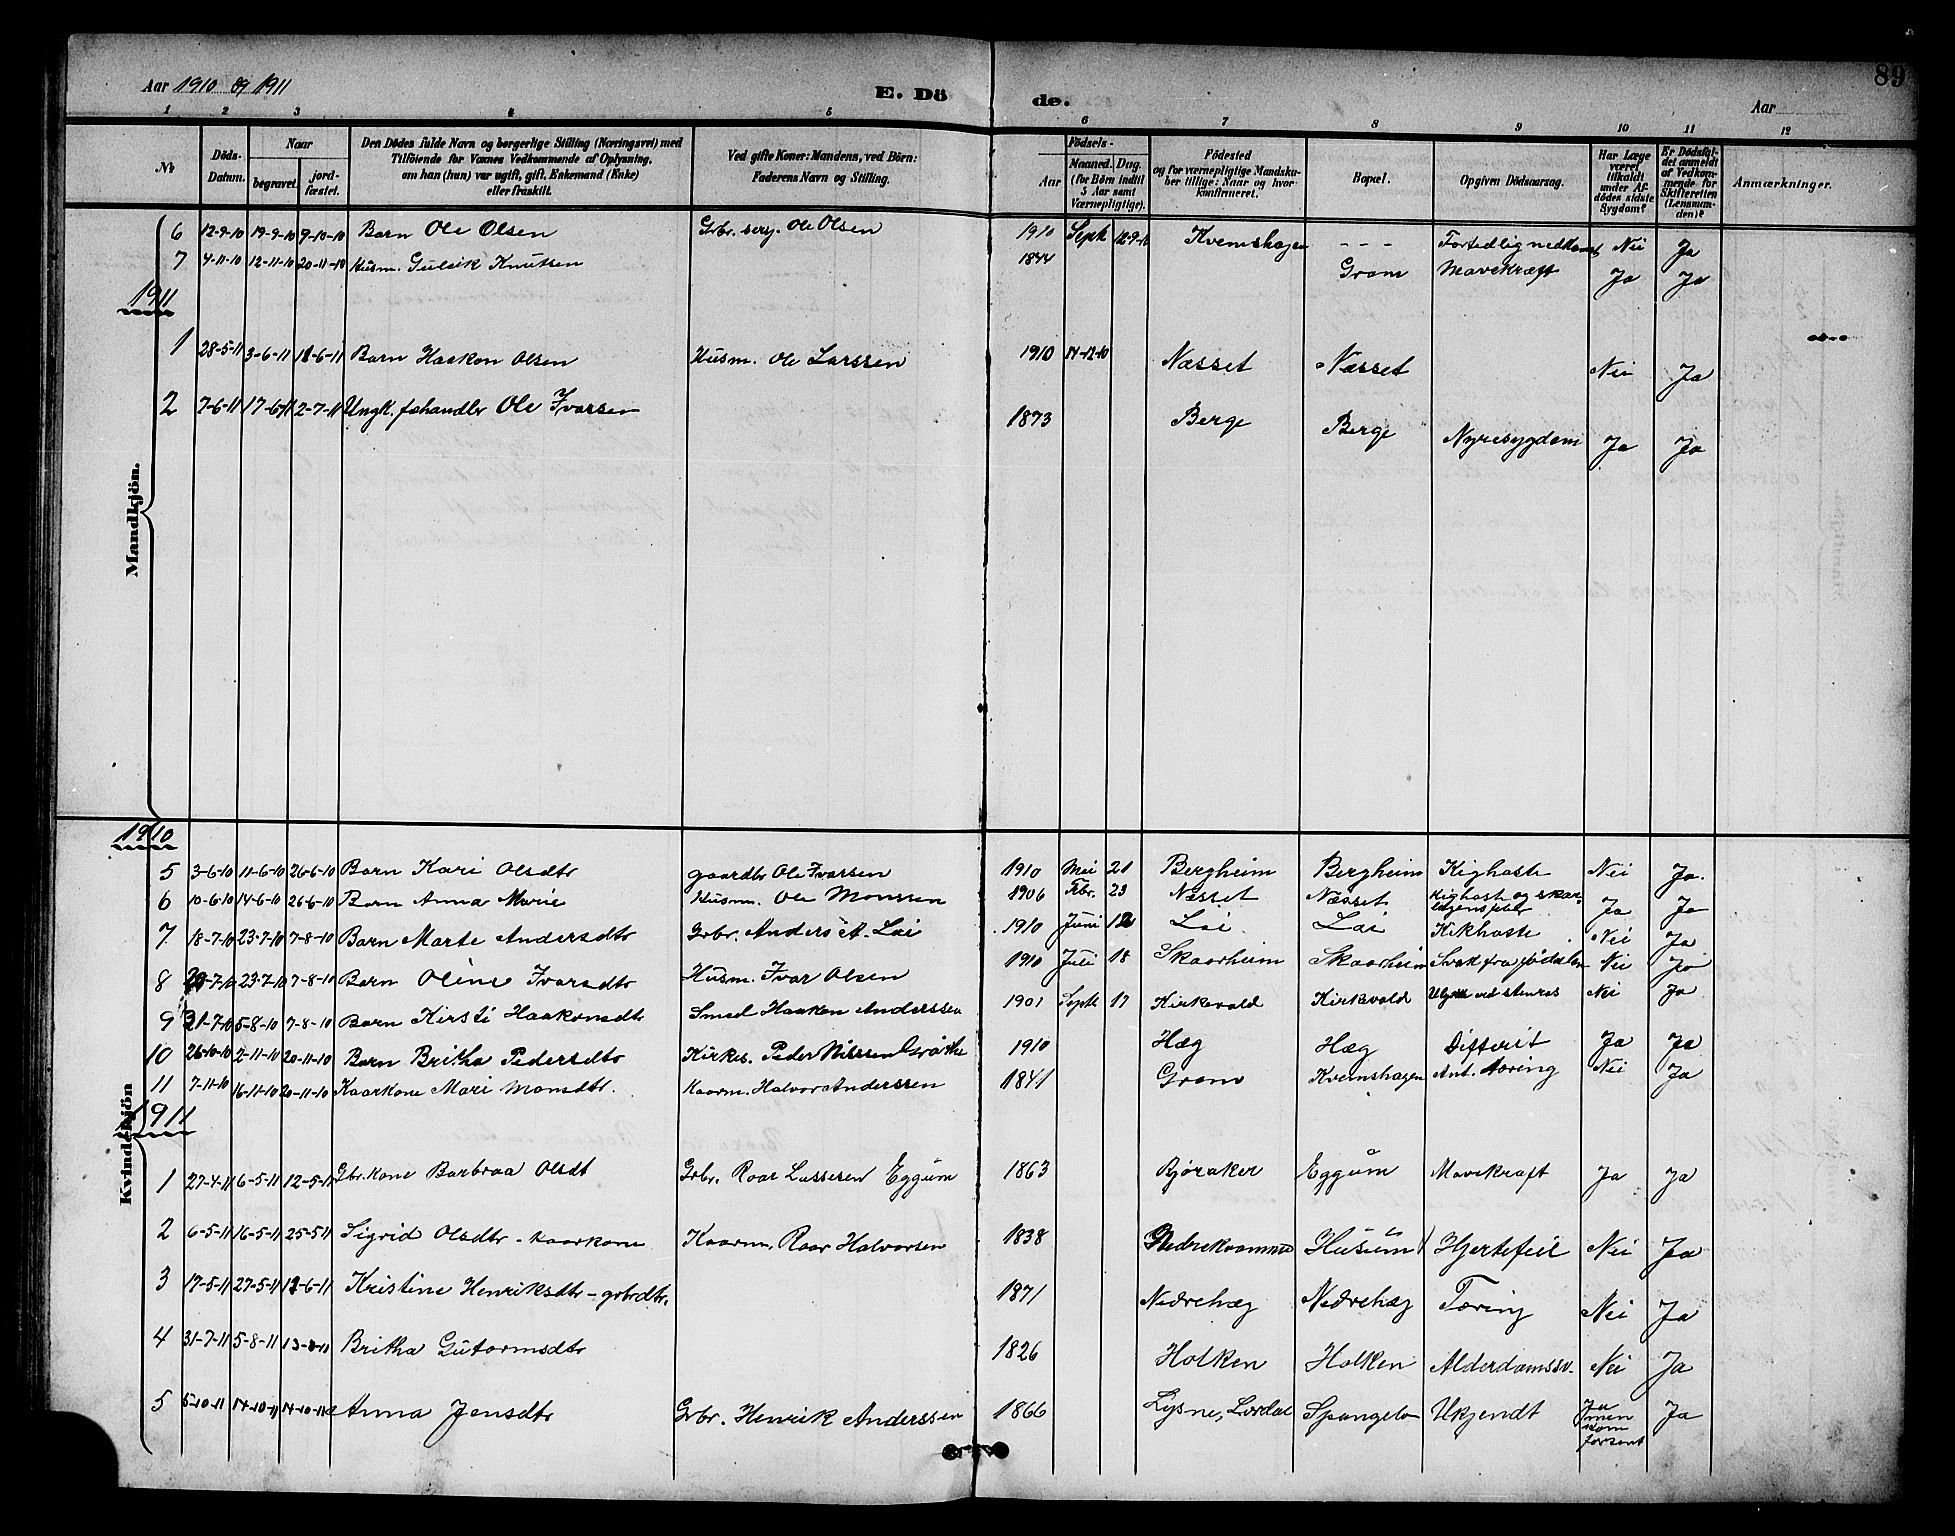 89
Aar 1910 og 1911
E. Döde.
Aar
1 2 3 4 5 6 7 8 9 10 11 12
No.
Döds-Datum.
Naar
begravet.
jordfæstet.
Den Dödes fulde Navn og borgerlige Stilling (Næringsvei) med
Tilföiende for Voxnes Vedkommende af Oplysning,
om han (hun) var ugift, gift, Enkemand (Enke)
eller fraskilt.
Ved gifte Koner: Mandens, ved Börn:
Faderens Navn og Stilling.
Födsels-
Aar
Maaned. Dag.
(for Börn indtil
5 Aar samt
Værnepligtige).
Födested
og for værnepligtige Mandsku-
ber tillige: Naar og hvor
konfirmeret.
Bopæl.
Opgiven Dödsaarsag.
Har Læge
været
tilkaldt
under Af-
dödes sidste
Sygdom?
Er Dödsfal-
det anmeldt
af Vedkom-
mende for
Skifteretten
(Lensman-
den)?
Anmærkninger.
Mandkjön.
6 12-9-10 19-9-10 9-10-10 Barn Ole Olsen Grbr. Ole Olsen 1910 Septr 12-9-10 Kvemshagen - - - Nei Ja
7 4-11-10 12-11-10 20-11-10 Husm. Gulleik Knutsen 1844 Gram Mavekræft Ja Ja
1911
1 28-5-11 3-6-11 11-6-11 Barn Haakon Olsen Husm. Ole Larssen 1910 14-12-10 Næsset Næsset Nei Ja
2 7-6-11 17-6-11 2-7-11 Ungk. fæhandler Ole Ivarsen 1873 Berge Berge Nyresygdom Ja Ja
1910
Kvindekjön
5 3-6-10 11-6-10 26-6-10 Barn Kari Olsdtr gaardbr Ole Ivarsen 1910 Mai 21 Bergheim Bergheim Kighoste Nei Ja.
6 10-6-10 14-6-10 26-6-10 Barn Anna Marie Husm. Ole Monssen 1906 Febr. 23 Næsset Næsset Kighoste og skar- Ja Ja
7 18-7-10 23-7-10 7-8-10 Barn Marte Andersdtr Grbr. Anders A. Lai 1910 Juni 12 Lai Lai Kikhoste Nei Ja
8 20-7-10 23-7-10 7-8-10 Barn Oline Ivarsdtr Husm. Ivar Olsen 1910 Juli 18 Skaarheim Skaarheim Svak fra fødselen Nei Ja
9 31-7-10 5-8-10 7-8-10 Barn Kirsti Haakonsdtr Smed Haaken Anderssen 1901 Septr 17 Kirkevold Kirkevold Ulykke ved stenras Nei Ja
10 26-10-10 2-11-10 20-11-10 Barn Britha Pedersdtr Kirkes. Peder Nilssen Grøthe 1910 Hæg Hæg Difterit Ja Ja
11 7-11-10 16-11-10 20-11-10 Kaarkone Mari Monsdtr. Kaarm. Halvor Anderssen 1841 Gram Kvemshagen Ant. tæring Nei Ja
1911
1 27-4-11 6-5-11 12-5-11 Gbr.kone Barbraa Olsdt Grbr. Roar Lassesen Eggum 1863 Bjøraker Eggum Mavekræft Ja Ja
2 6-5-11 16-5-11 25-5-11 Sigrid Olsdtr - kaarkone Kaarm. Roar Halvorsen 1838 Nedrekvamme Husum Hjertefeil Nei Ja
3 17-5-11 27-5-11 11-6-11 Kristine Henriksdtr - grbrdtr. 1871 Nedrehæg Nedrehæg Tæring Nei Ja
4 31-7-11 5-8-11 13-8-11 Britha Gutormsdtr 1826 Holken Holken Alderdomssv. Nei Ja
5 5-10-11 14-10-11 14-10-11 Anna Jensdtr Grbr. Henrik Anderssen 1866 Lysne, Lærdal Spangelo Ukjendt Ja men kom forsent Ja